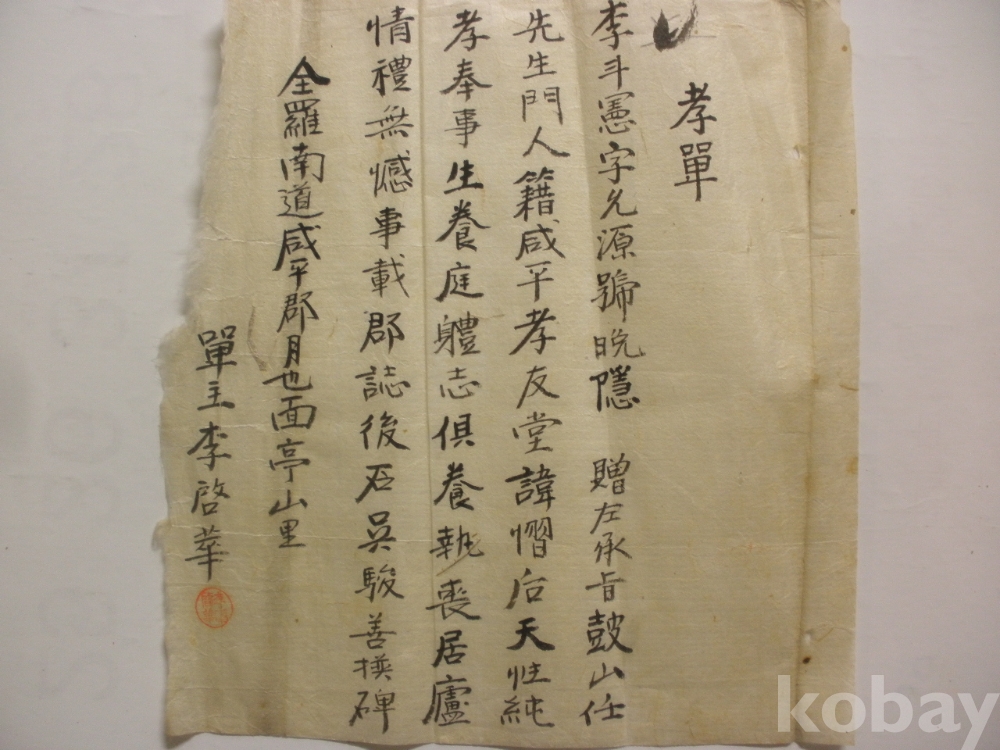 孝單
李斗憲字允源號晩隱 贈左承旨鼓山任
先生門人籍咸平孝友堂諱慴后天性純
孝奉事生養庭軆志俱養執喪居廬
情禮無憾事載郡誌後石吳駿善撰碑
全羅南道咸平郡月也面亭山里
單主李啓華
kobay